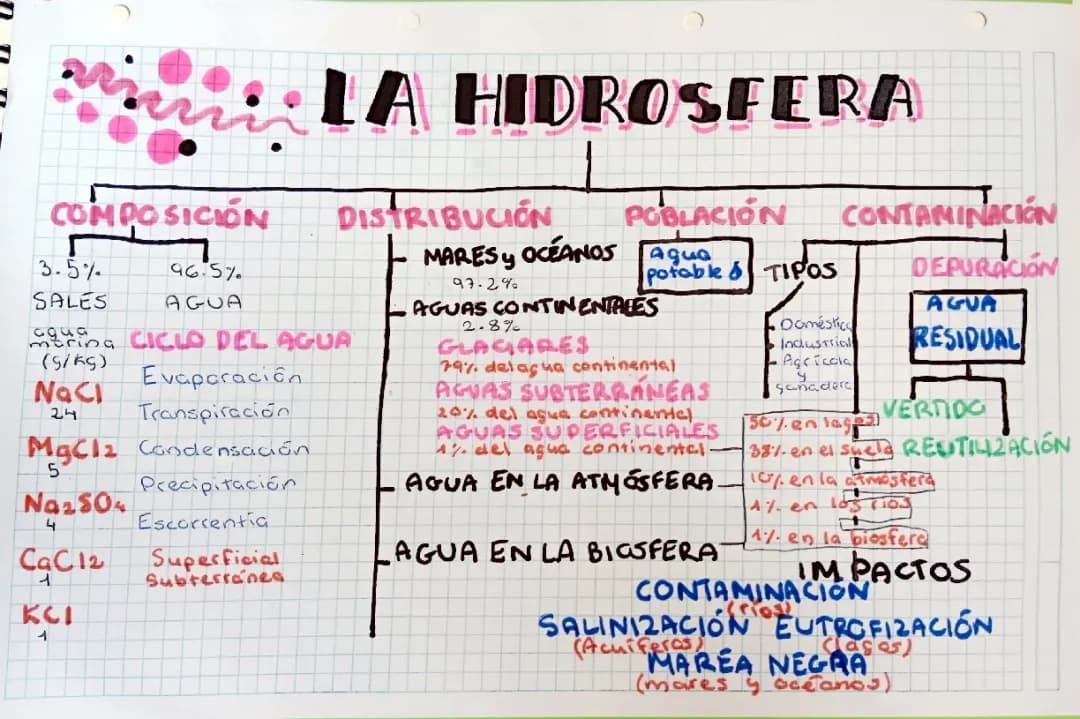 LA HIDROSFERA
COMPOSICIÓN
3.5%
SALES
96.5%
AGUA
agua
marina
(g/kg)
NaCl
24
MgCl2
5
Na2SO4
4
CaCl2
1
KCl
1
CICLO DEL AGUA
Evaporación
Transpiración
Condensación
Precipitación
Escorrentía
Superficial
Subterránea
DISTRIBUCIÓN
MARES y OCÉANOS
97.2%
AGUAS CONTINENTALES
2.8%
GLACIARES
79% del agua continental
AGUAS SUBTERRÁNEAS
20% del agua continental
AGUAS SUPERFICIALES
1% del agua continental
50% en lagos
38% en el suelo
10% en la atmósfera
1% en los ríos
1% en la biosfera
AGUA EN LA ATMÓSFERA
AGUA EN LA BIOSFERA
POBLACIÓN
Agua
potable
CONTAMINACIÓN
TIPOS
Doméstica
Industrial
Agrícola
y
ganadera
DEPURACIÓN
AGUA
RESIDUAL
VERTIDO
REUTILIZACIÓN
IMPACTOS
CONTAMINACIÓN
(ríos)
SALINIZACIÓN EUTROFIZACIÓN
(Acuíferos) (lagos)
MAREA NEGRA
(mares y océanos)